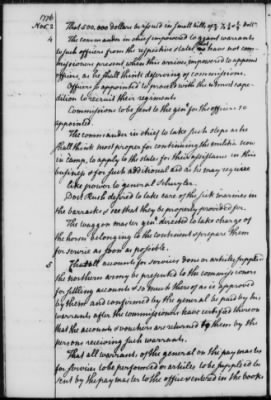 1776
Nov. 2 That 500,000 dollars be issued in small bills of
4 The commander in chief impowered to grant warrants
to such officers from the respective states that have not com-
missioners present when this arrives, impowered to appoint
officers, as he shall think deserving of commissions.
Officers so appointed to proceed with the utmost expe-
dition to recruit their regiments
Commissions to be sent to the genl for the officers so
appointed.
The commander in chief to take such steps as he
shall think most proper for continuing the militia now
in camp, to apply to the states for their assistance in this
business & for such additional aid as he may require
like power to general Schuyler.
Doct Rush desired to take care of the sick marines in
the barracks & see that they be properly provided for.
The waggon master genl directed to take charge of
the horses belonging to the continent & prepare them
for service as soon as possible.
5 That all accounts for services done or articles supplied
the northern army be presented to the commissioners
for settling accounts & so much thereof as is approved
by them and confirmed by the general be paid by his
warrants after the commissioners have certified thereon
that the accounts & vouchers are returned to them by the
persons receiving such warrants.
That all warrants of the general on the pay master
for services to be performed or articles to be supplied be
sent by the pay master to the officer entered in the books